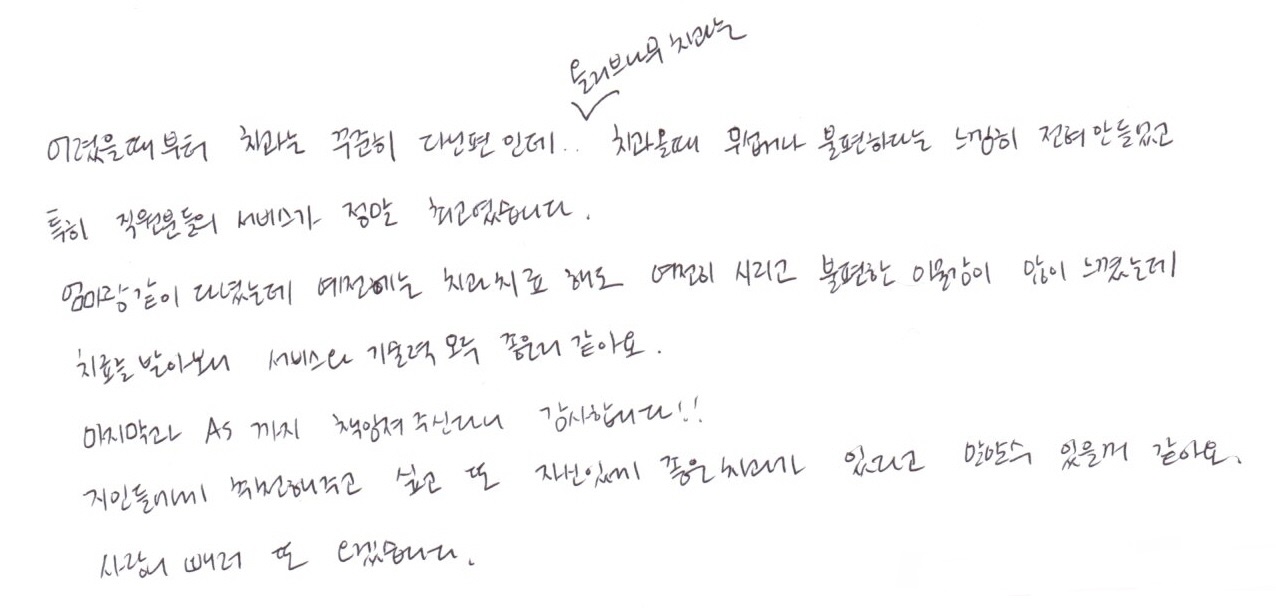 올리브나무 치과는
어렸을때부터 치과는 꾸준히 다닌편인데.. 치과올때 무섭거나 불편하다는 느낌히 전혀안들었고
특히 직원분들의 서비스가 정말 최고였습니다.
엄마랑같이 다녔는데 예전에는 치과치료 해도 여전히 시리고 불편한 이물감이 많이 느꼈는데
치료를 받아보니 서비스와 기술력 모두 좋은거 같아요.
마지막과 AS 까지 책임져주신다니 감사합니다!!
지인들에게 추천해주고 싶고 또 자신있게 좋은치과가 있다고 말할수 있을꺼 같아요.
사랑니 빼러 또 오겠습니다.